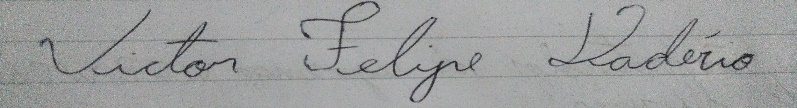 Victor Felipe Valério